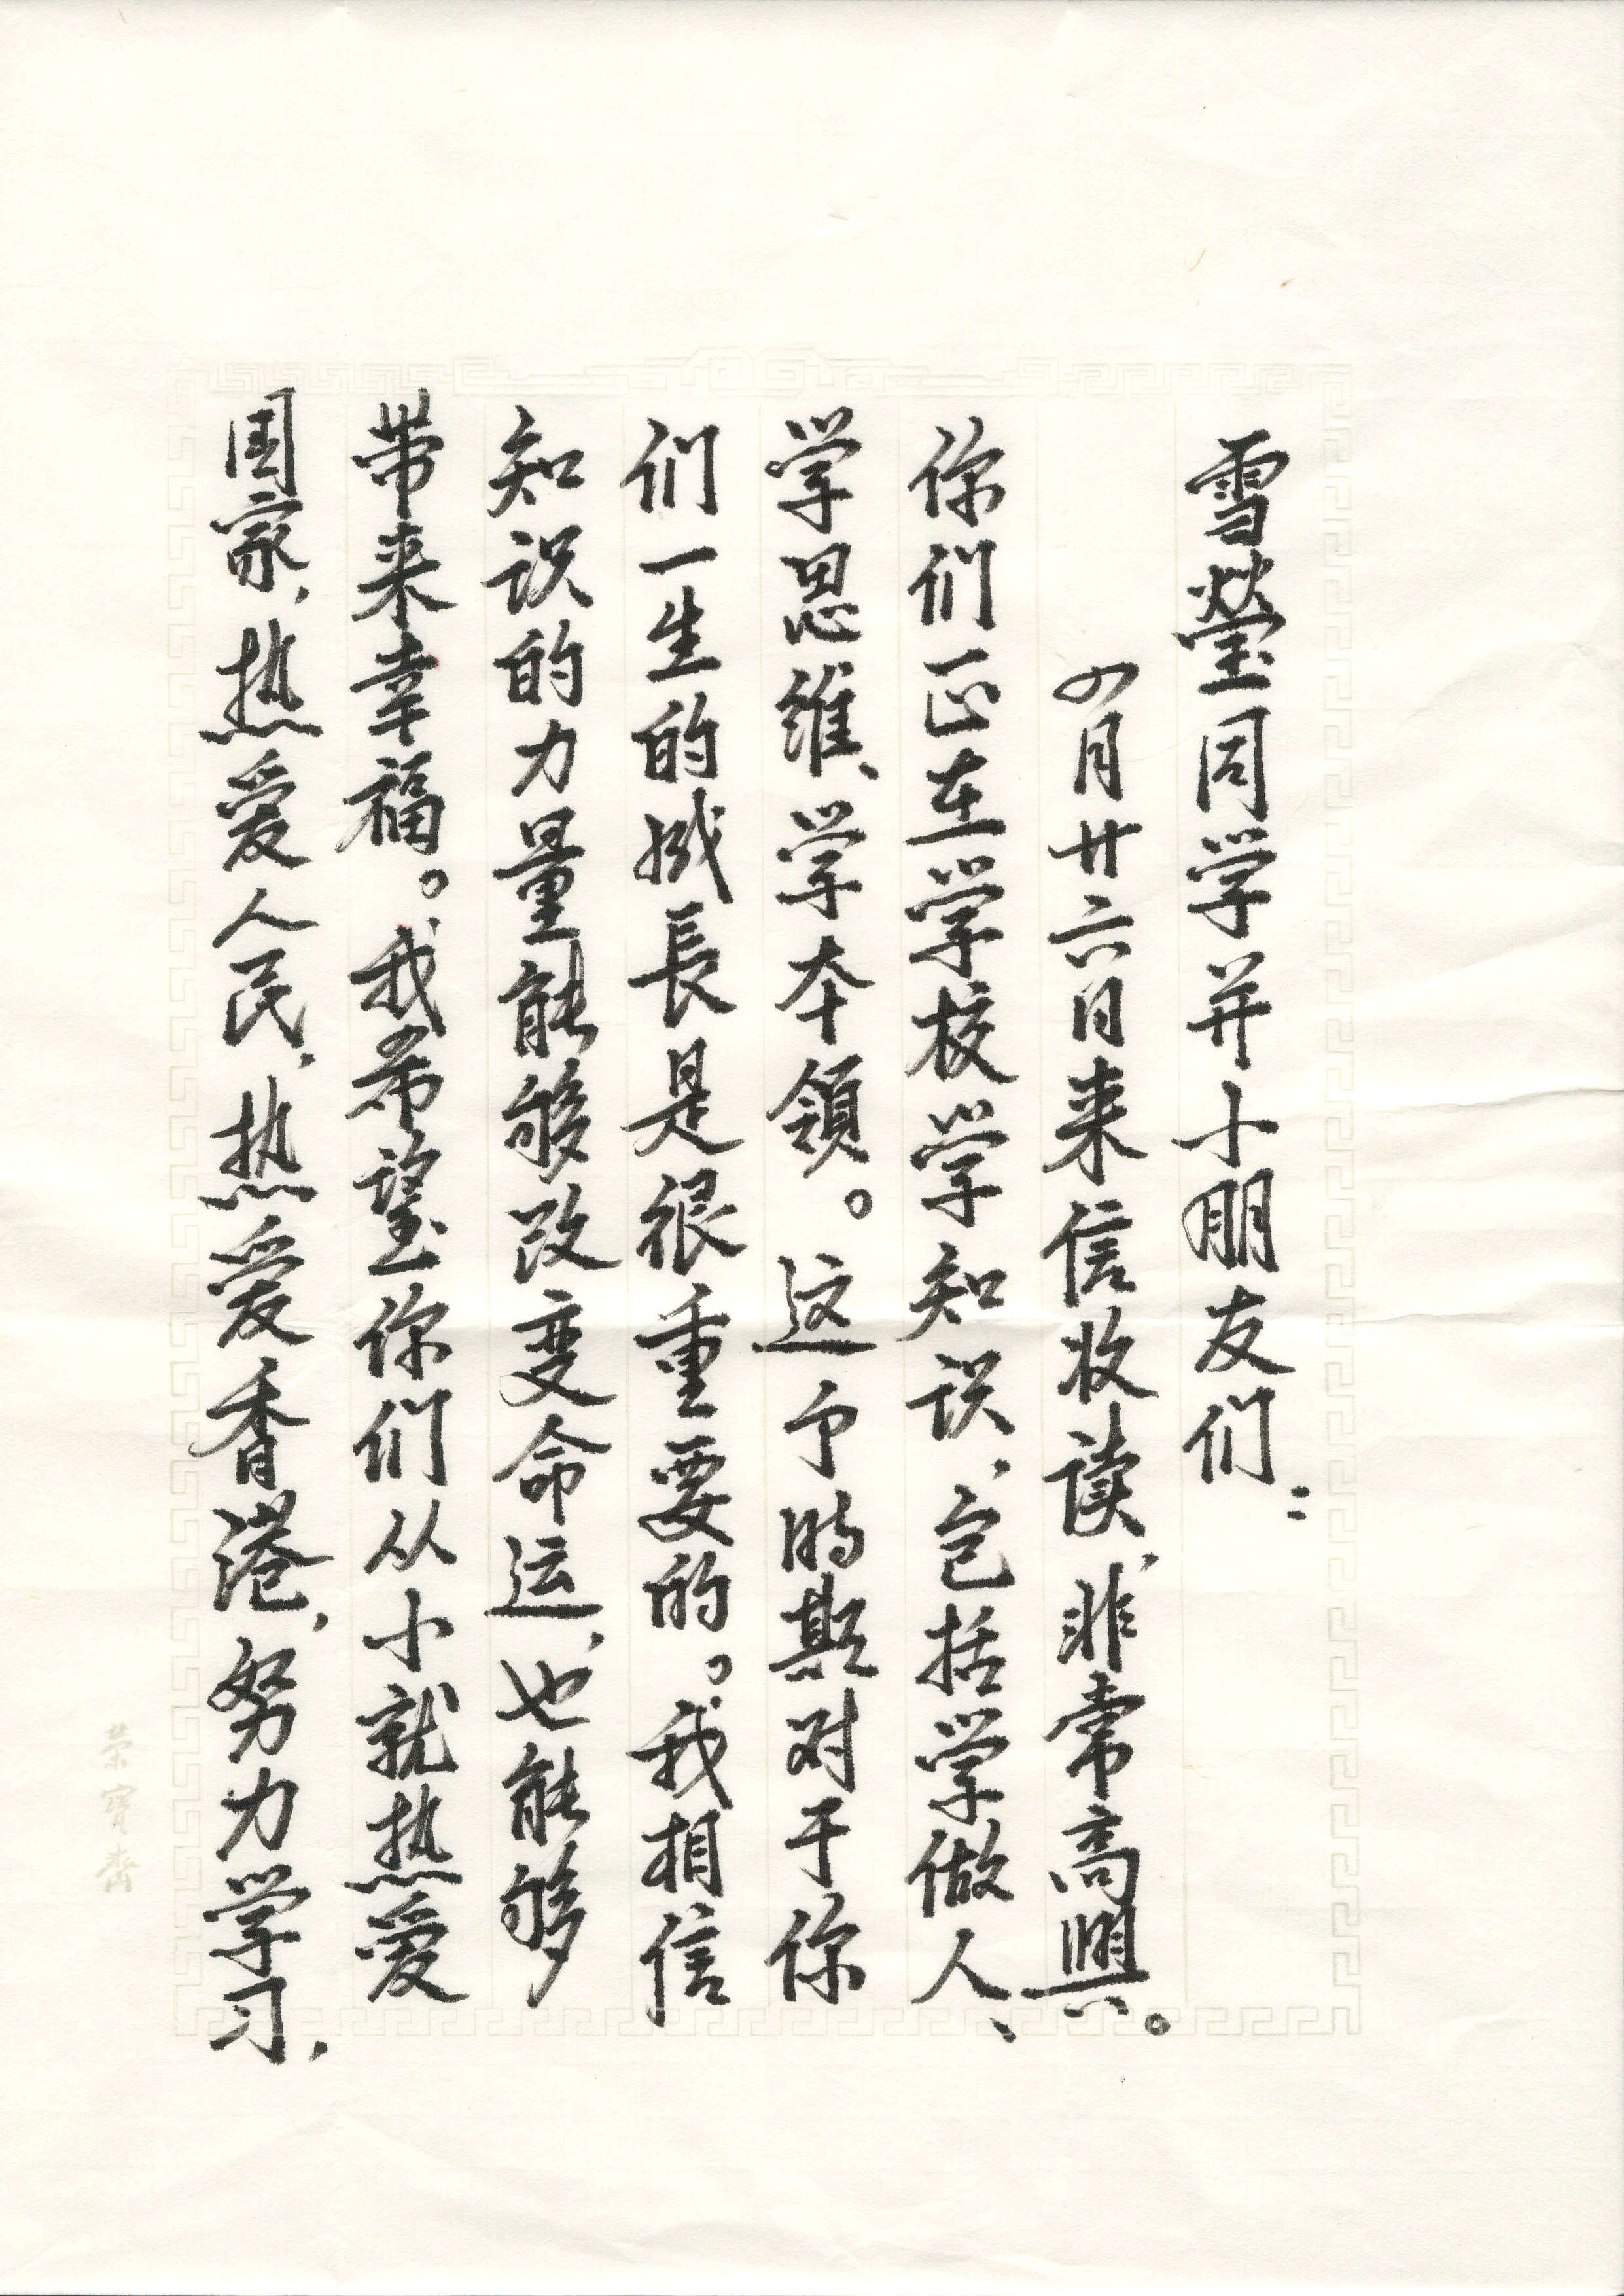 雪瑩同学并小朋友们：
四月廿六日来信收读，非常高興。
你们正在学校学知识，包括学做人、
学思维、学本領。这个时期对于你
们一生的成長是很重要的。我相信
知识的力量能够改变命运，也能够
带来幸福。我希望你们从小就热爱
国家，热爱人民，热爱香港，努力学习，
荣寳齋